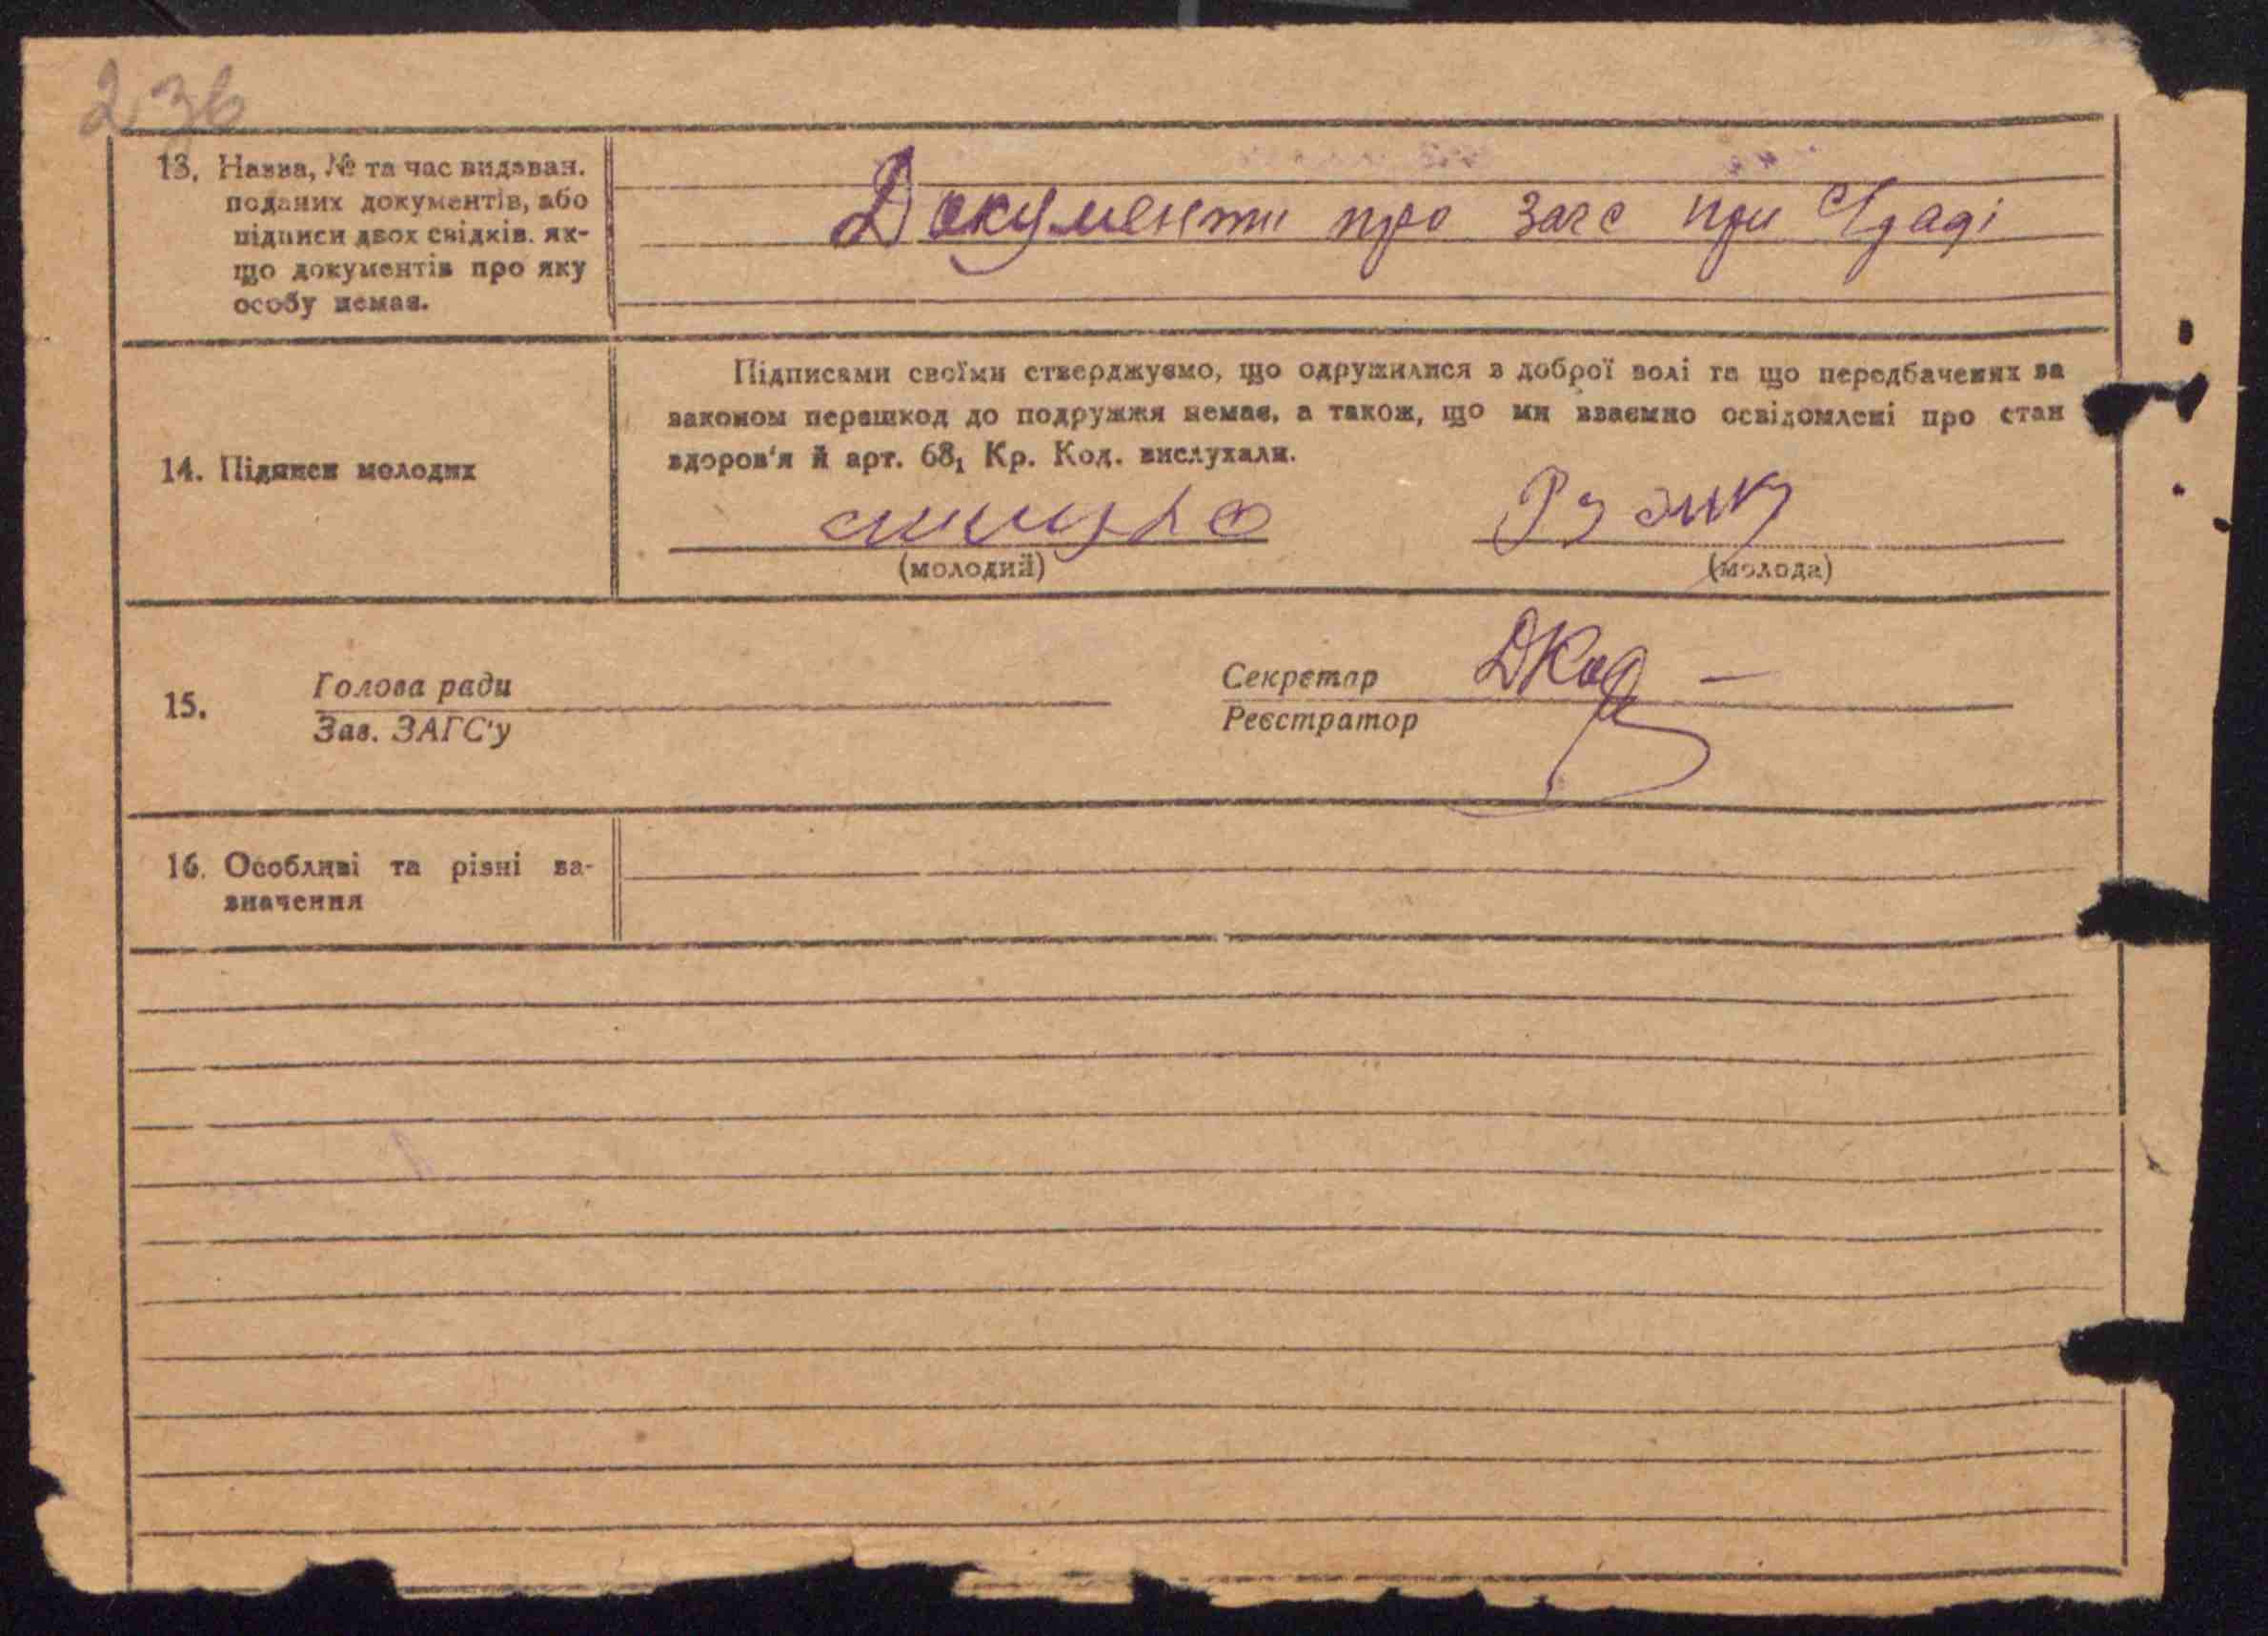 236
13. Назва, № та час видаван.
поданих документів, або
підписи двох свідків. як-
що документів про яку
особу немає.
Документи про загс при
14. Підписи молодих
Підписами своїми стверджуємо, що одружилися з доброї волі та що передбачених за
законом перешкод до подружжя немає, а також, що ми взаємно освідомлені про стан
здоров'я й арт. 68, Кр. Код. вислухали.
(молодий)
(молода)
15.
Голова ради
Зав. ЗАГС'у
Секретар
Реєстратор
16. Особливі та різні за-
значення